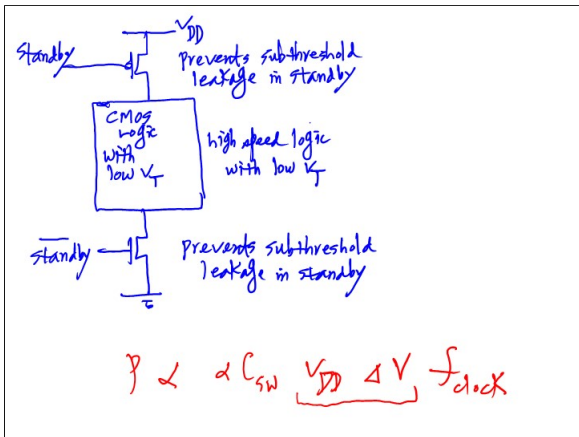 V_DD
Standby
prevents subthreshold
leakage in standby
CMOS
Logic
with
low V_T
high speed logic
with low V_T
S̅t̅a̅n̅d̅b̅y̅
prevents subthreshold
leakage in standby
P ∝ αC_sw V_DD ΔV f_clock